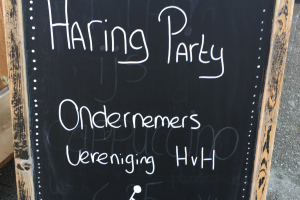 Haring Party
Ondernemers
Vereniging HvH